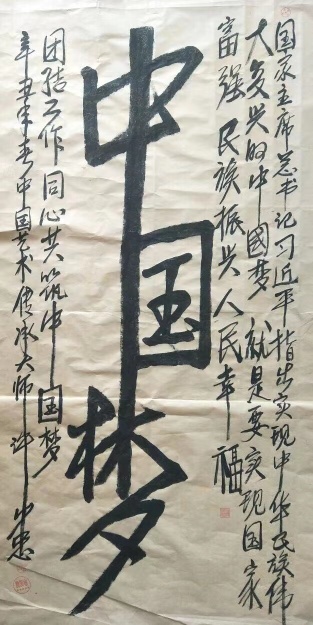 国家主席总书记习近平指出实现中华民族伟
大复兴的中國梦就是要实现国家
富强民族振兴人民幸福
中国梦
团结工作同心共筑中国梦
辛丑年春中国艺术传承大师许山忠